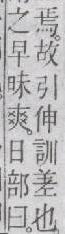 焉。故引伸訓差也
之早昧爽。日部曰。